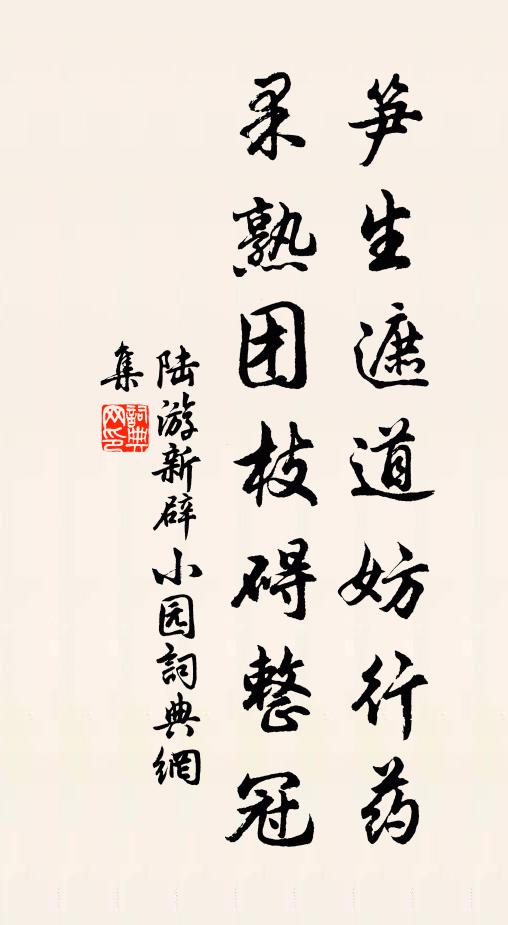 笋生遮道妨行药
果熟团枝碍整冠
陆游新辟小园詞典網
集
詞典
网印